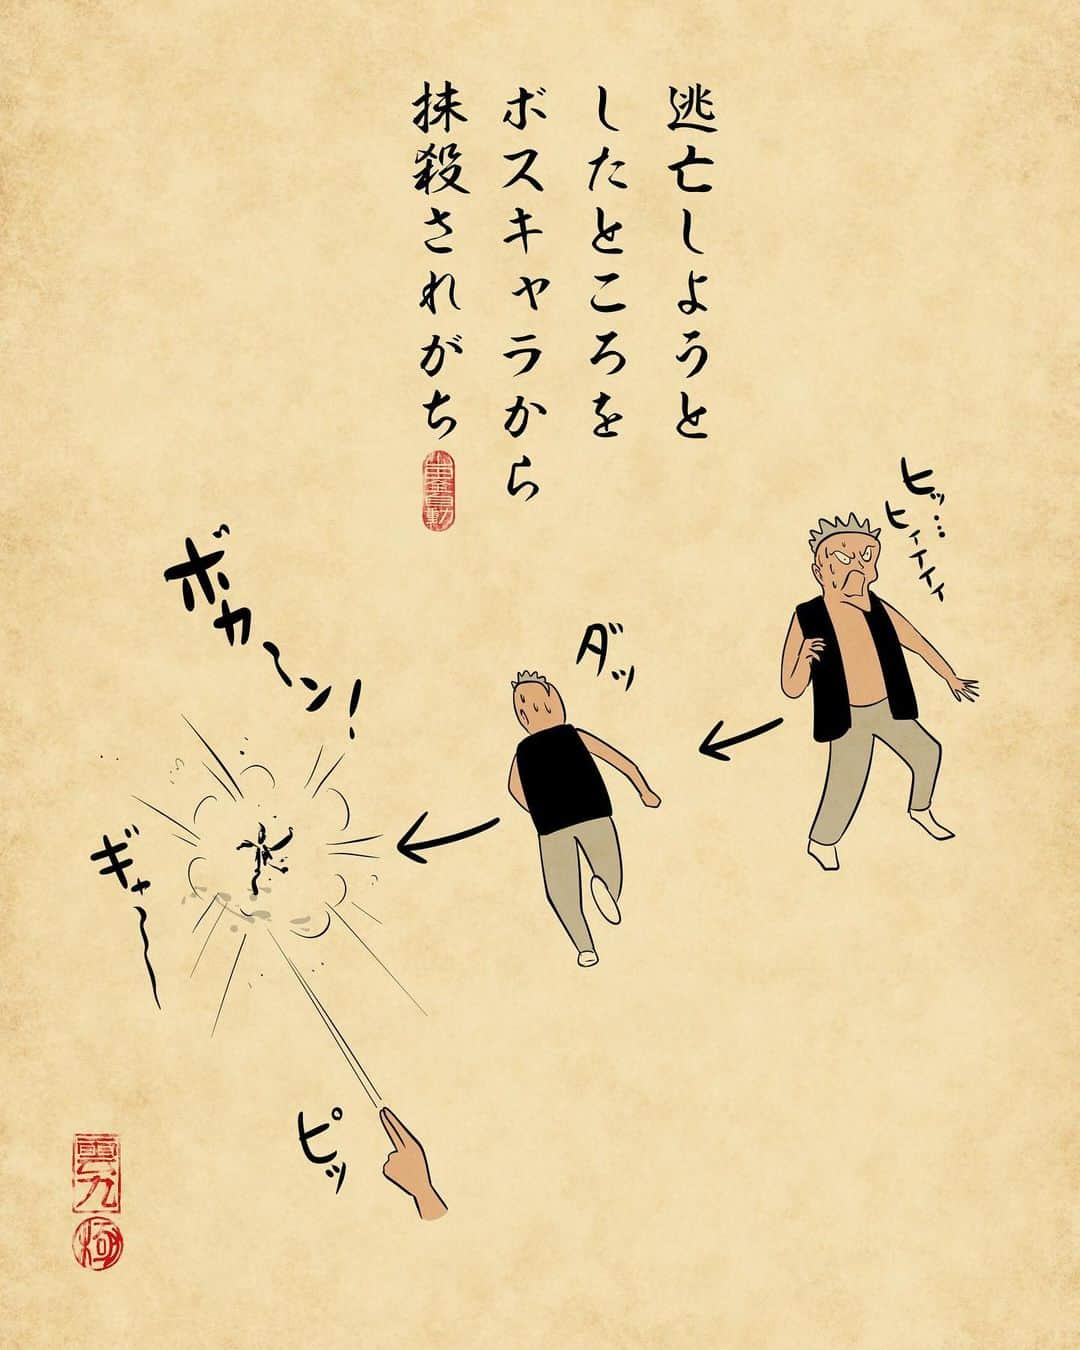 逃亡しようと
したところを
ボスキャラから
抹殺されがち
ヒッ…
ヒィイイイ
ダッ
ボカーン！
ギャー
ピッ